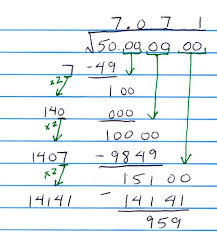 7.071
√50.00 00 00
7 -49
×2 1 00
140 000
×2 100 00
1407 -9849
×2 151 00
14141 - 14141
959